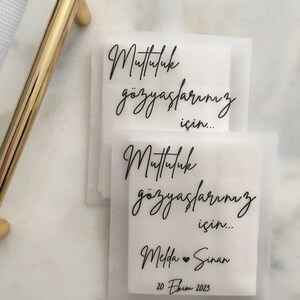 Mutluluk
gözyaşlarımız
için...
Mutluluk
gözyaşlarımız
için...
Melda ♥ Sinan
20 Ekim 2023